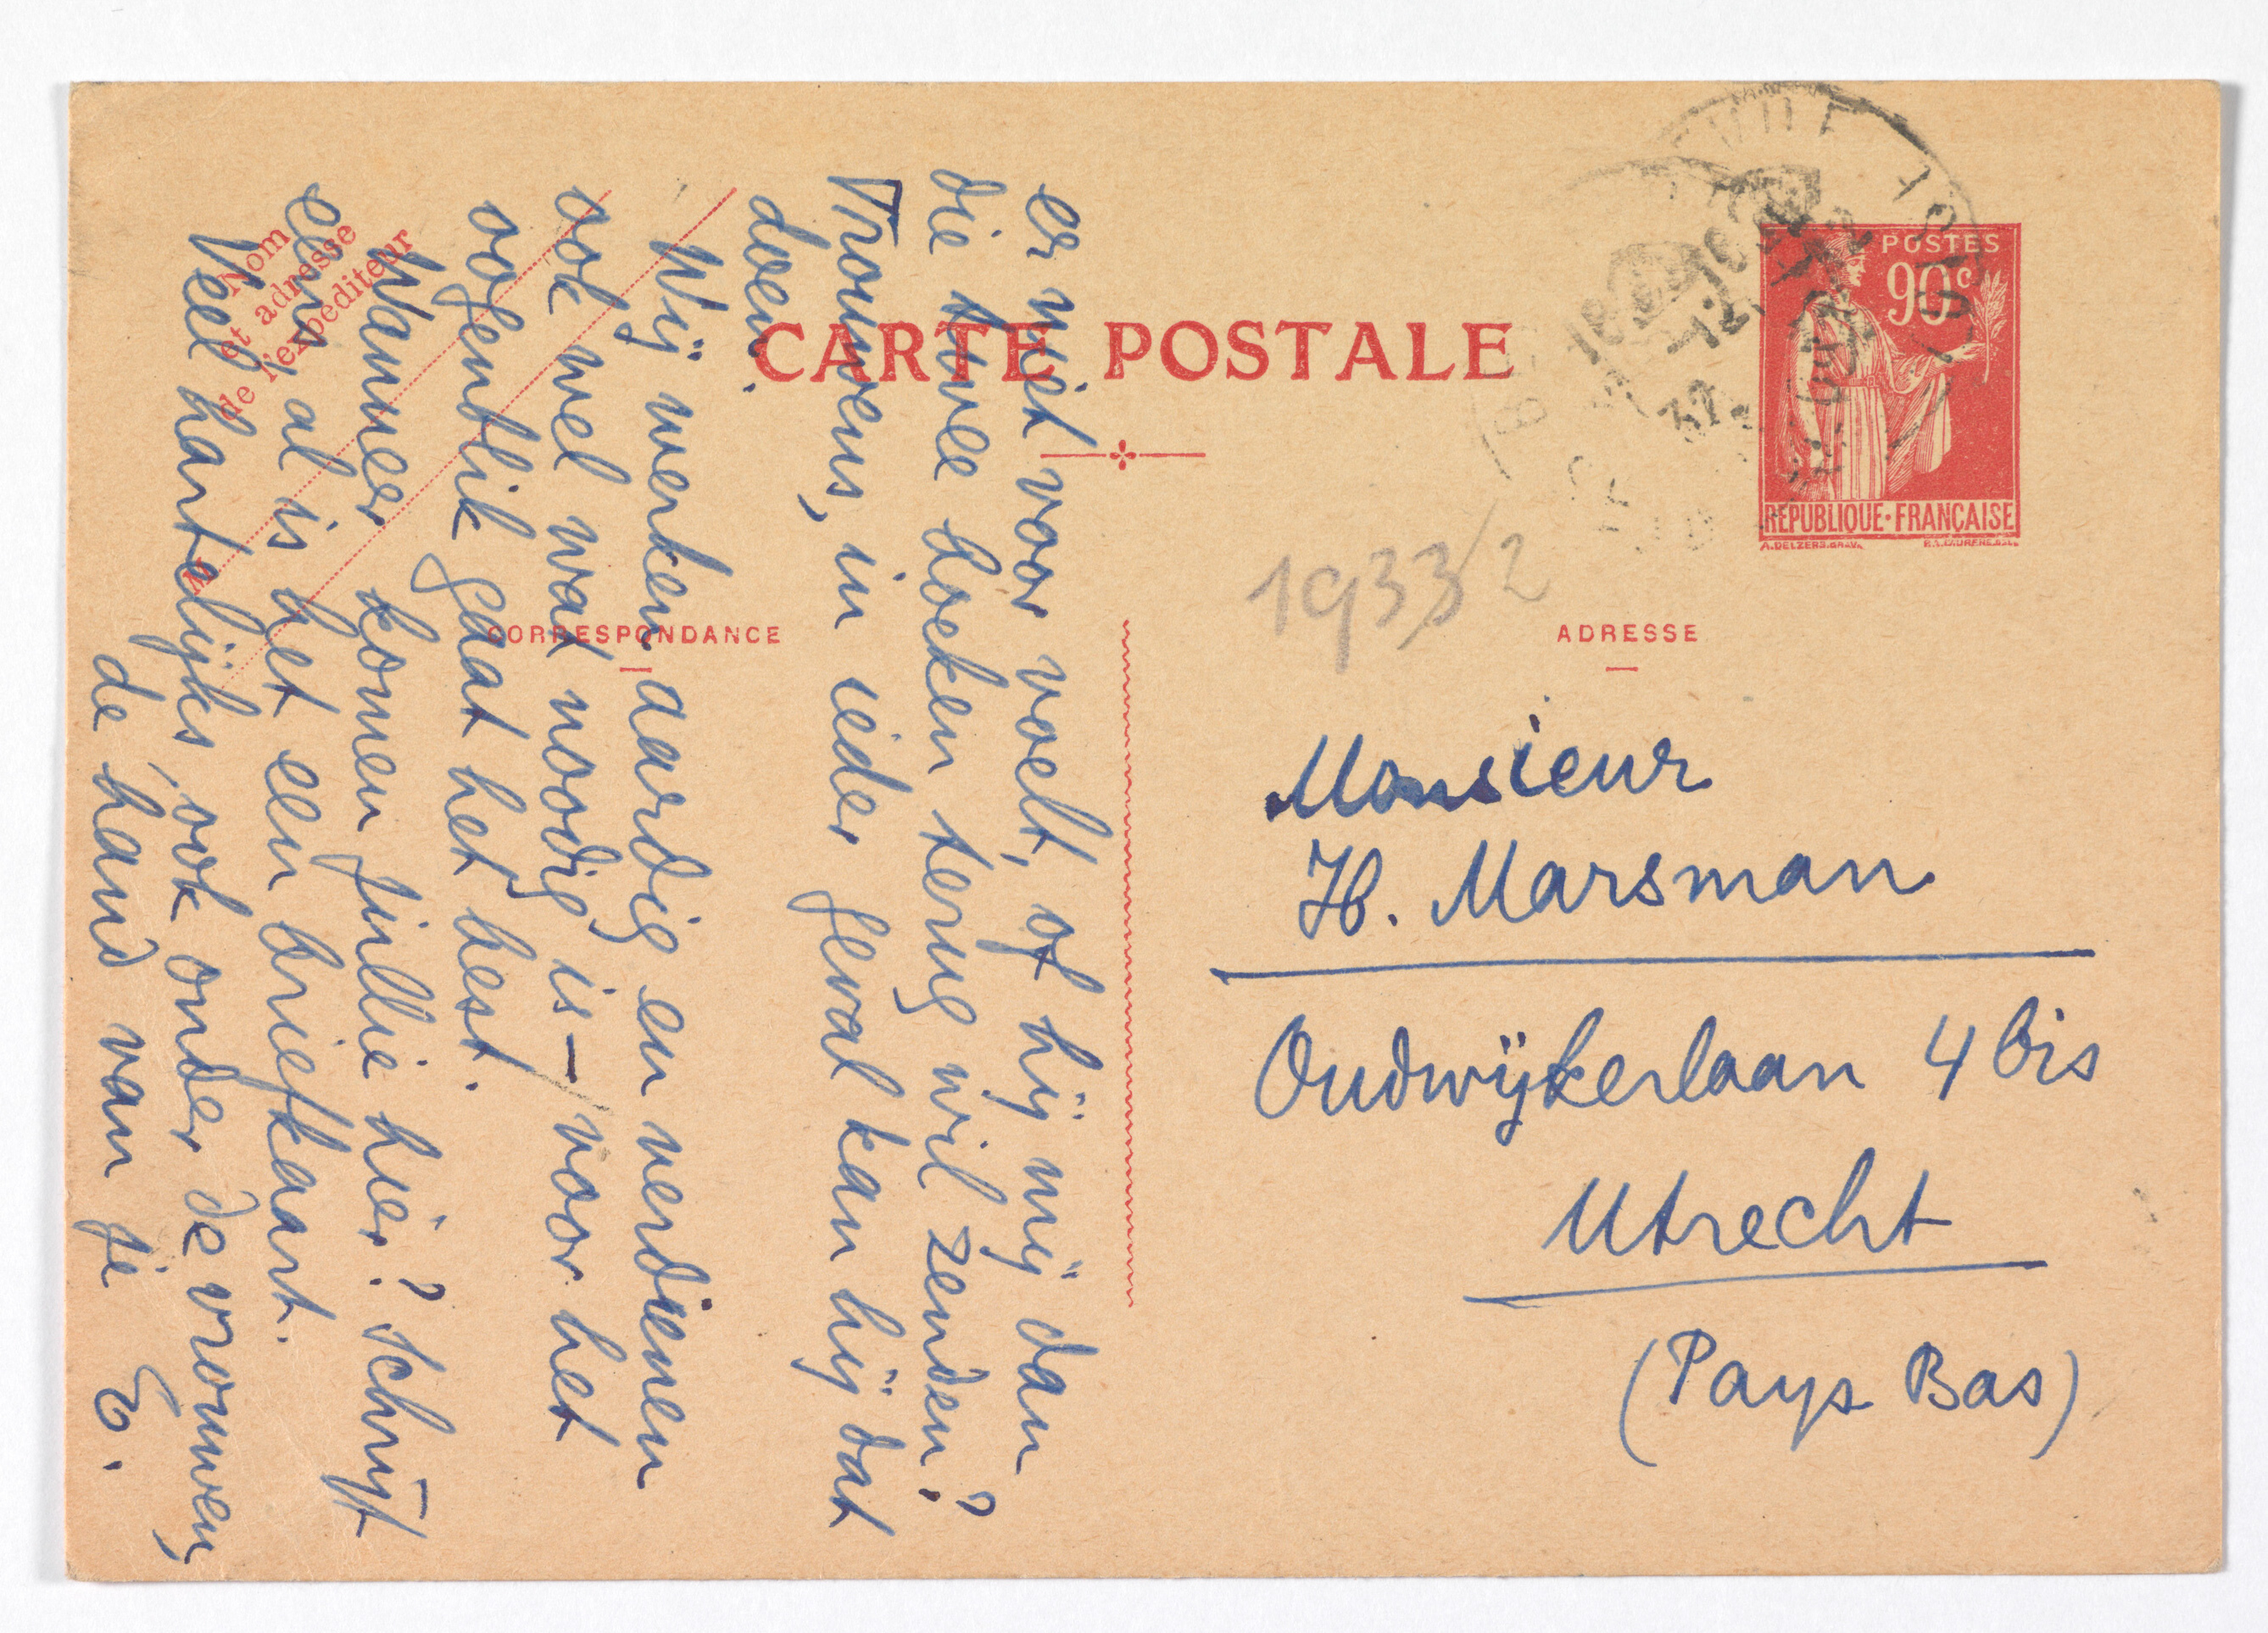 CARTE POSTALE
POSTES
90c
REPUBLIQUE·FRANÇAISE
Nom
et adresse
de l'expéditeur
CORRESPONDANCE
ADRESSE
1933/2
Monsieur
H. Marsman
Oudwijkerlaan 4 bis
Utrecht
(Pays Bas)
er niet voor voelt, of hij mij dan
die twee boeken terug wil zenden?
Trouwens, in ieder geval kan hij dat
doen.
Wij werken aardig en verdienen
ook wel wat noodig is – voor het
oogenblik gaat het best.
Wanneer komen jullie hier? Schrijf
eens, al is het een briefkaart.
Veel hartelijks, ook onder de vrouwen,
de hand van je E.